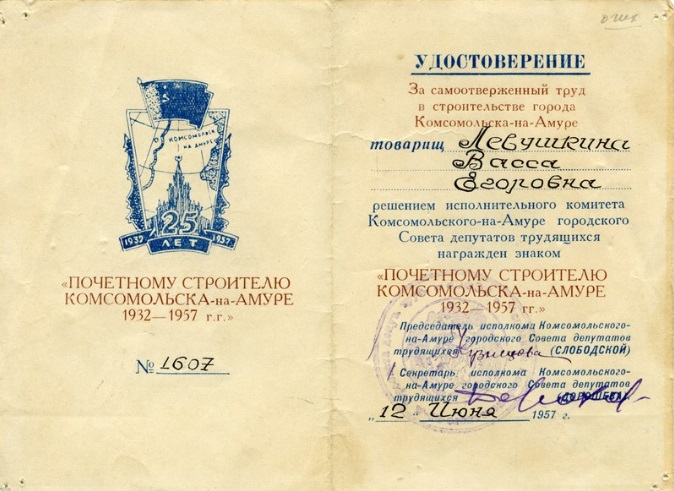 КОМСОМОЛЬСК
НА АМУРЕ
25
1932 ЛЕТ 1957
«ПОЧЕТНОМУ СТРОИТЕЛЮ
КОМСОМОЛЬСКА-на-АМУРЕ
1932—1957 г.г.»
№ 1607
УДОСТОВЕРЕНИЕ
За самоотверженный труд
в строительстве города
Комсомольска-на-Амуре
товарищ Левушкина
Васса
Егоровна
решением исполнительного комитета
Комсомольского-на-Амуре городского
Совета депутатов трудящихся
награжден знаком
«ПОЧЕТНОМУ СТРОИТЕЛЮ
КОМСОМОЛЬСКА-на-АМУРЕ
1932—1957 г.г.»
Председатель исполкома Комсомольского-
на-Амуре городского Совета депутатов
трудящихся (СЛОБОДСКОЙ)
Секретарь исполкома Комсомольского-
на-Амуре городского Совета депутатов
трудящихся
„12" Июня 1957 г.